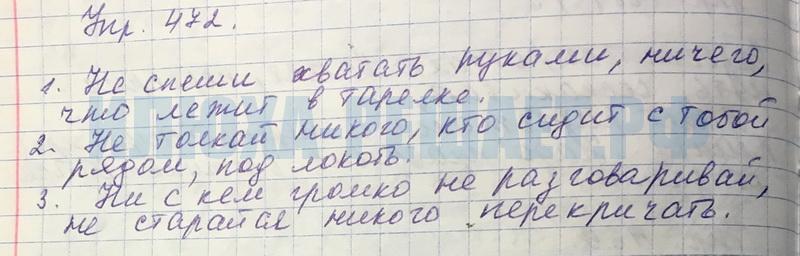 Упр. 472.
1. Не спеши хватать руками, ничего,
что лежит в тарелке.
2. Не толкай никого, кто сидит с тобой
рядом, под локоть.
3. Ни с кем громко не разговаривай,
не старайся никого перекричать.